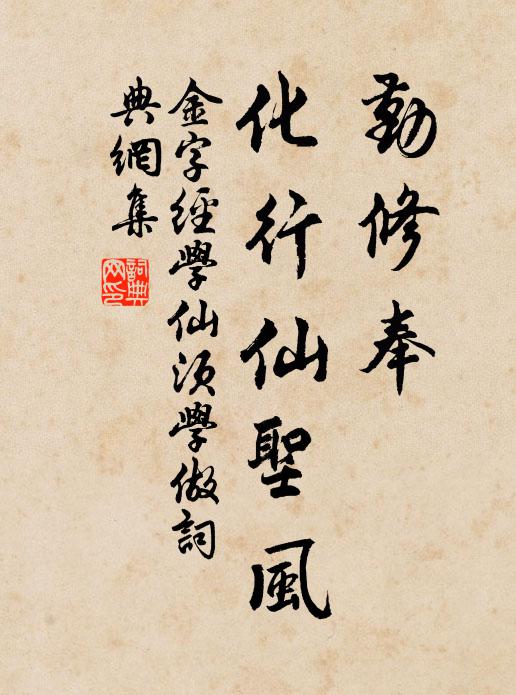 勤修奉
化行仙聖風
金字經學仙須學做詞
典網集
詞典
网印